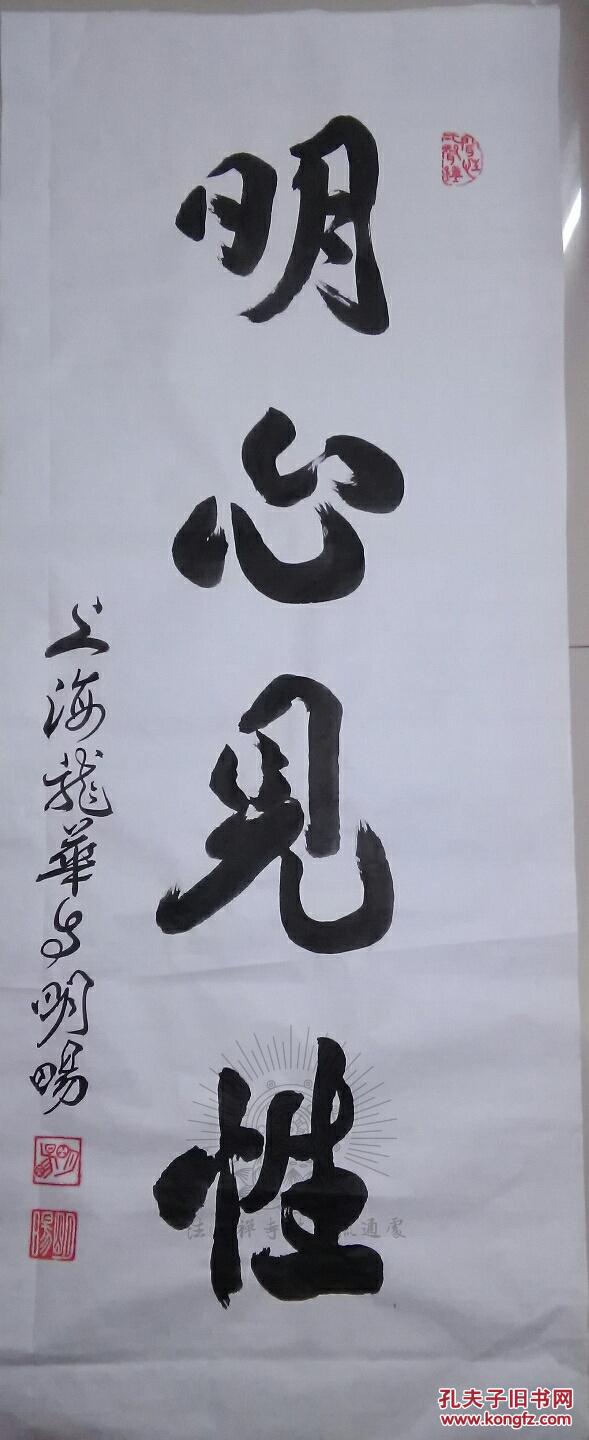 明心見性
上海龍華寺明暘
禅寺
流通處
孔夫子旧书网
www.kongfz.com